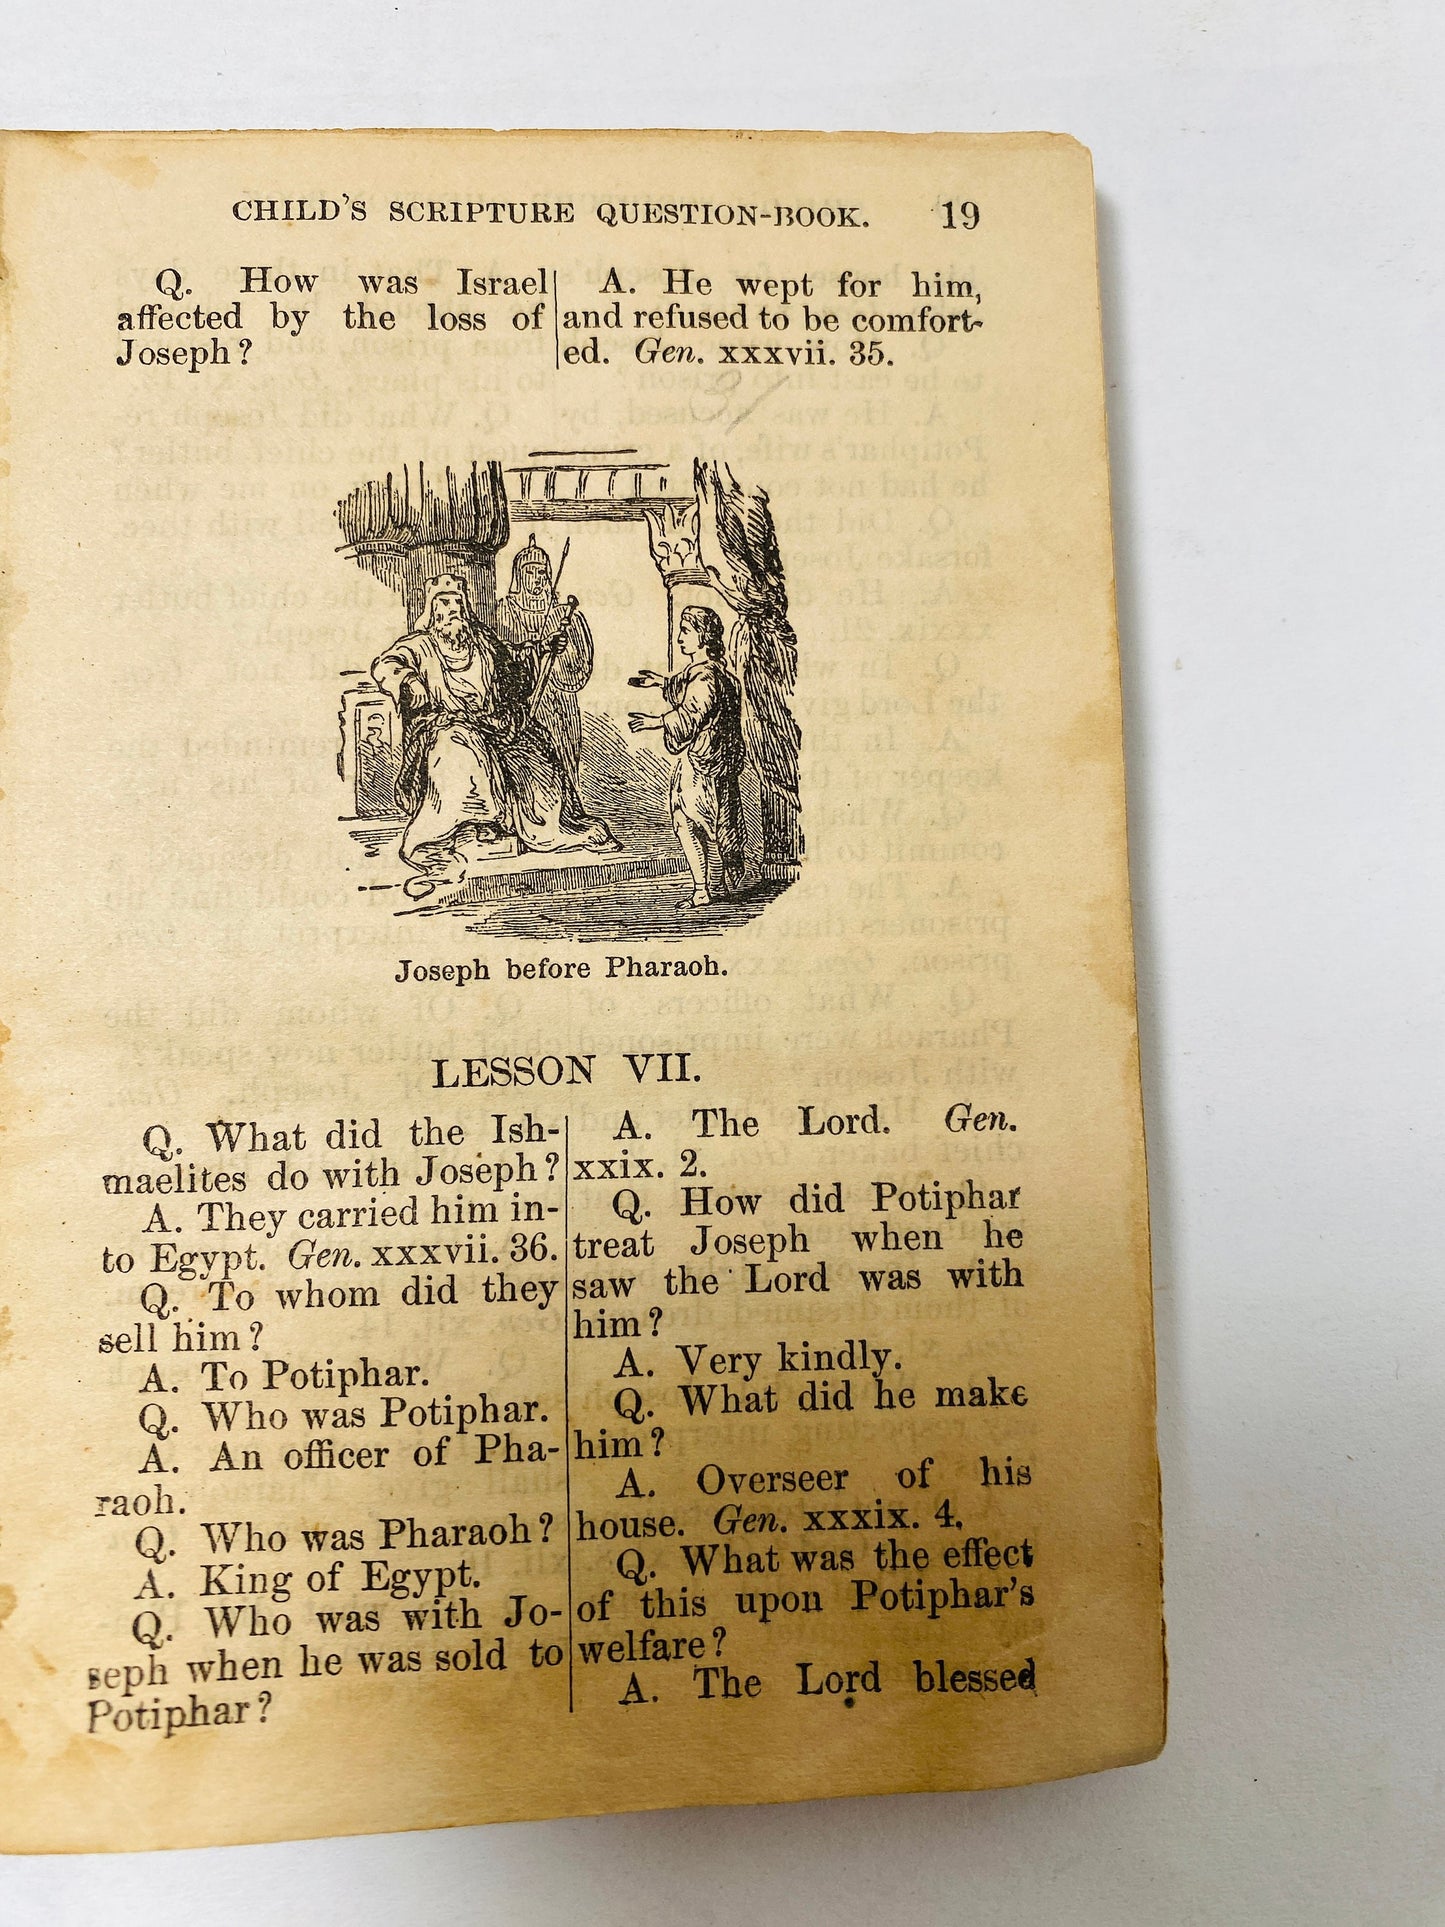 CHILD'S SCRIPTURE QUESTION-BOOK. 19
Q. How was Israel
affected by the loss of
Joseph?
A. He wept for him,
and refused to be comfort-
ed. Gen. xxxvii. 35.
Joseph before Pharaoh.
LESSON VII.
Q. What did the Ish-
maelites do with Joseph?
A. They carried him in-
to Egypt. Gen. xxxvii. 36.
Q. To whom did they
sell him?
A. To Potiphar.
Q. Who was Potiphar.
A. An officer of Pha-
raoh.
Q. Who was Pharaoh?
A. King of Egypt.
Q. Who was with Jo-
seph when he was sold to
Potiphar?
A. The Lord. Gen.
xxix. 2.
Q. How did Potiphar
treat Joseph when he
saw the Lord was with
him?
A. Very kindly.
Q. What did he make
him?
A. Overseer of his
house. Gen. xxxix. 4.
Q. What was the effect
of this upon Potiphar's
welfare?
A. The Lord blessed